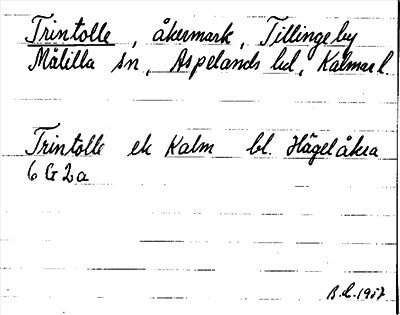 Trintolle, åkermark, Tillingeby
Målilla sn, Aspelands hd, Kalmar l.
Trintolle ek Kalm bl. Hägelåkra
6 G 2 a